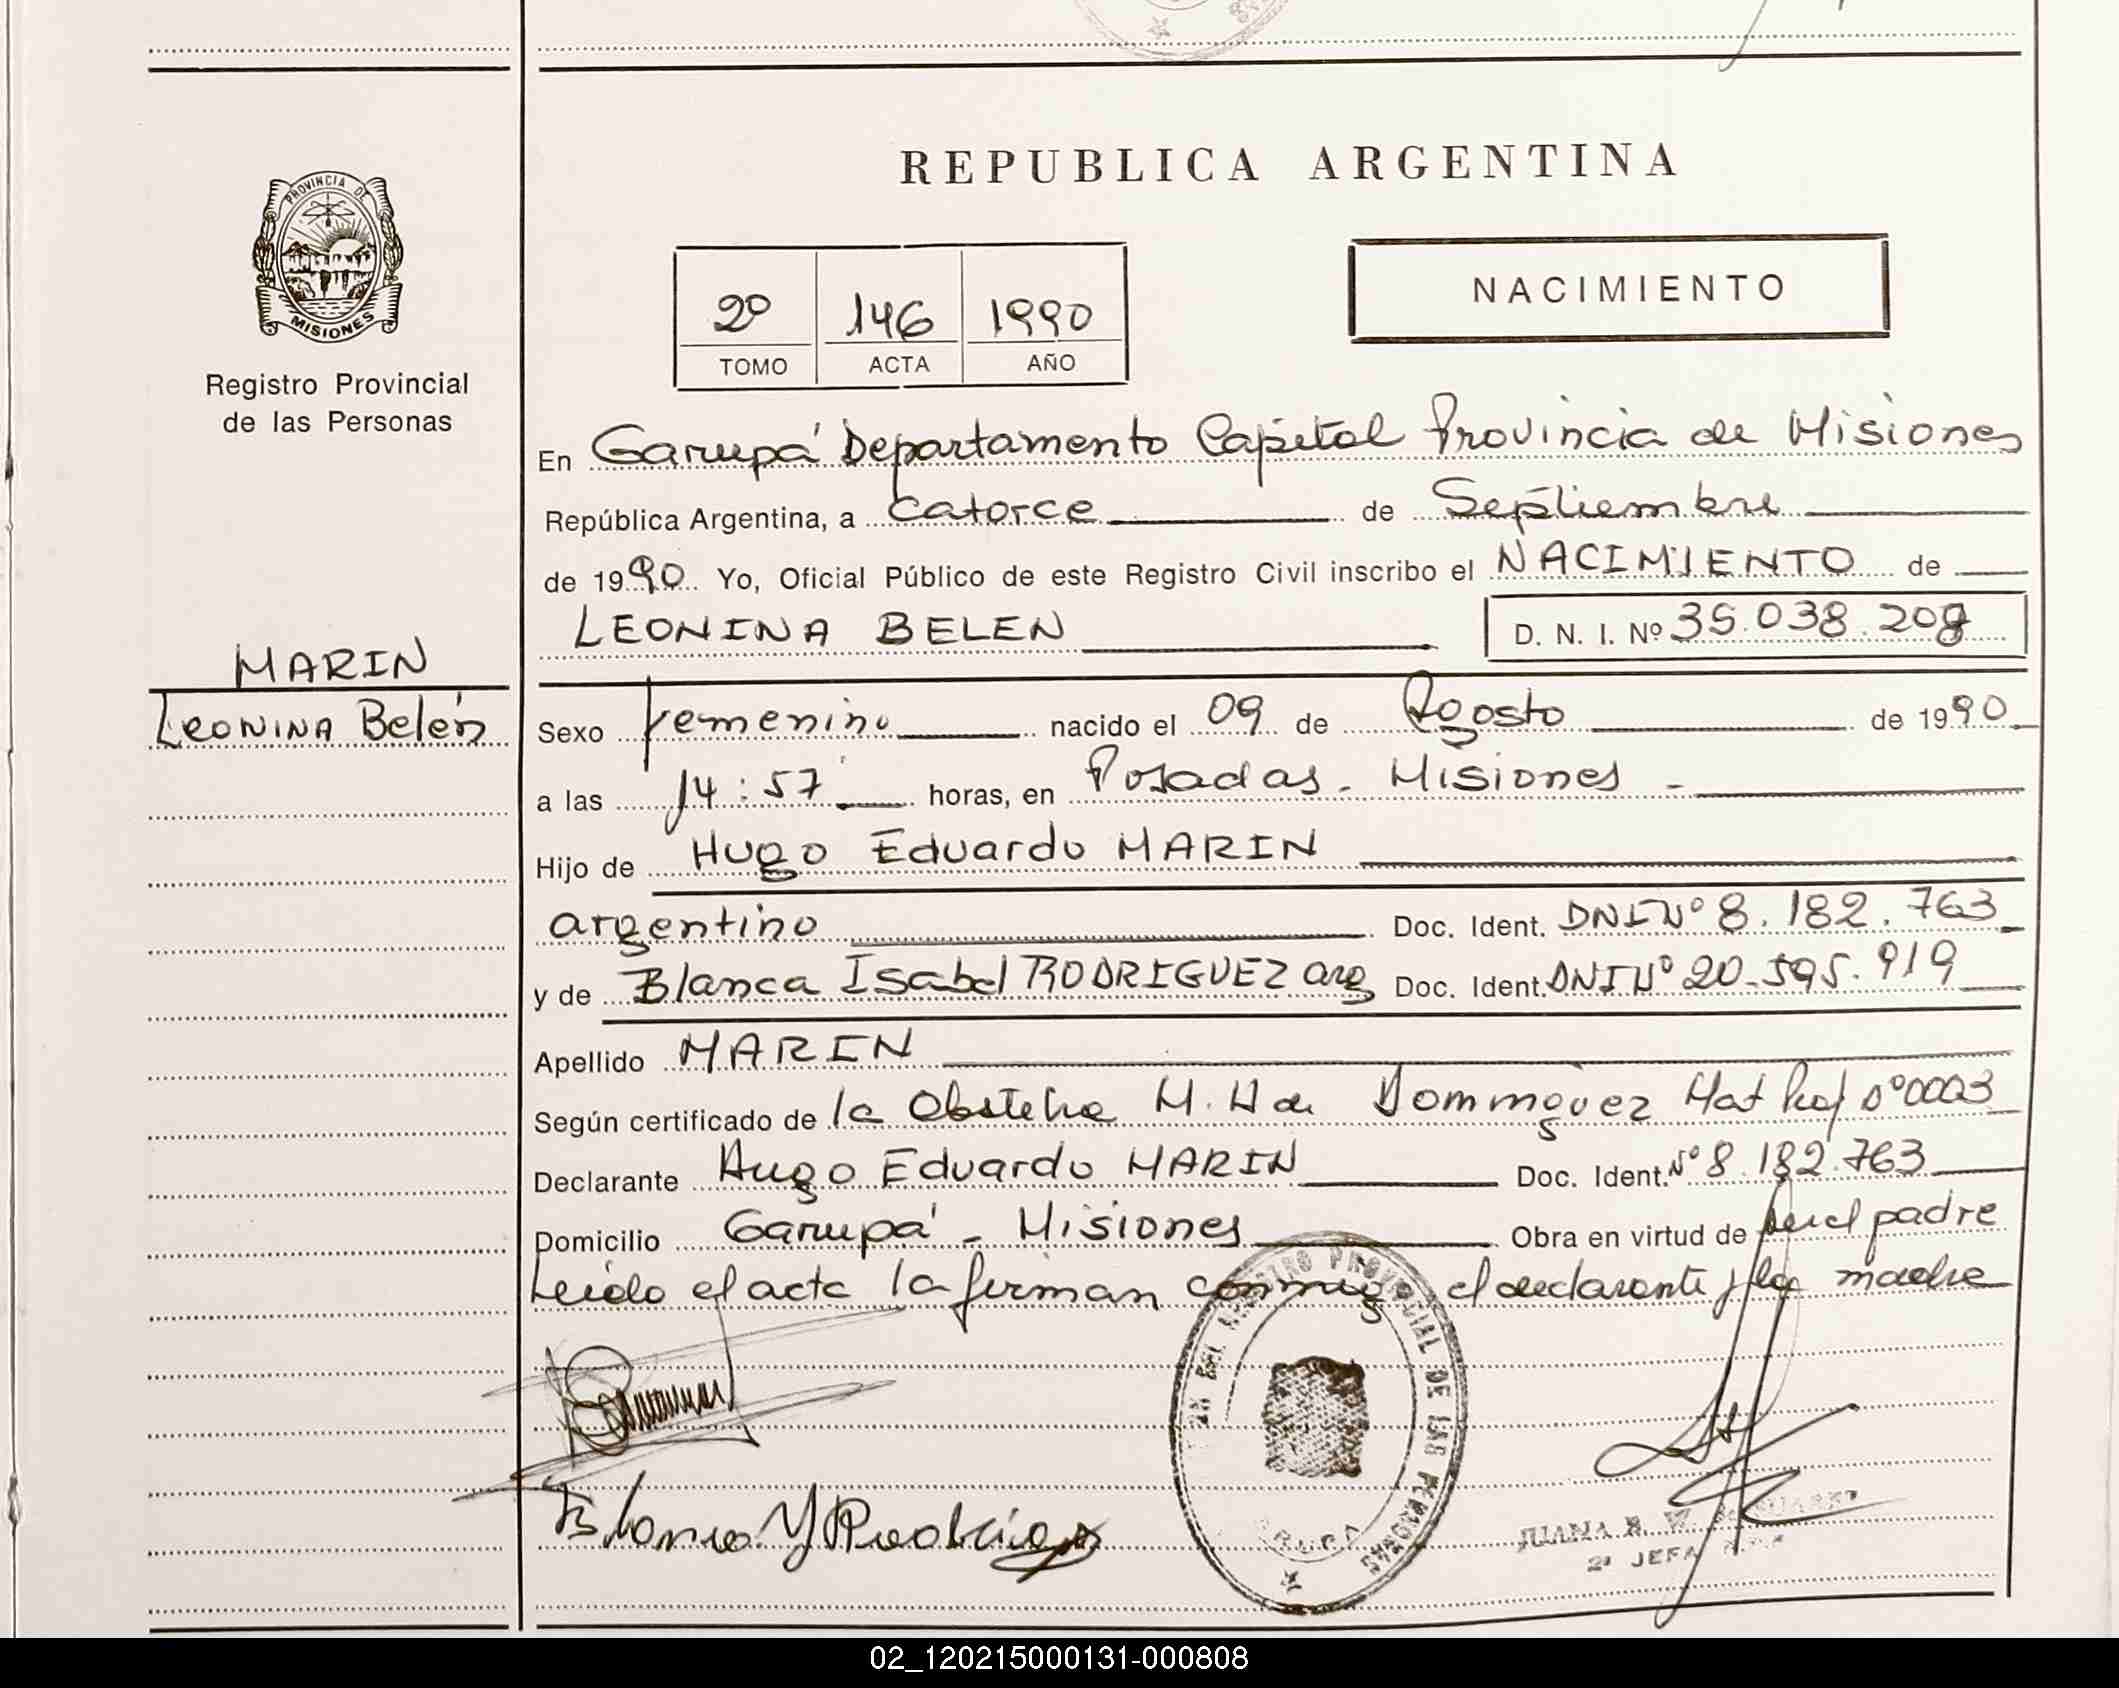 REPUBLICA ARGENTINA
PROVINCIA DE
MISIONES
Registro Provincial
de las Personas
2º 146 1990
TOMO ACTA AÑO
NACIMIENTO
En Garupá Departamento Capital Provincia de Misiones
República Argentina, a catorce de Septiembre
de 1990 Yo, Oficial Público de este Registro Civil inscribo el NACIMIENTO de
LEONINA BELEN D. N. I. Nº 35.038.208
MARIN
LEONINA Belén
Sexo Femenino nacido el 09 de Agosto de 1990
a las 14:57 horas, en Posadas - Misiones -
Hijo de Hugo Eduardo MARIN
argentino Doc. Ident. DNI Nº 8.182.763
y de Blanca Isabel RODRIGUEZ arg Doc. Ident. DNI Nº 20.595.919
Apellido MARIN
Según certificado de la Obstetra M. H de Dominguez Mat Prof Nº 0003
Declarante Hugo Eduardo MARIN Doc. Ident. Nº 8.182.763
Domicilio Garupá - Misiones Obra en virtud de ser el padre
Leído el acta la firman conmigo el declarante y la madre
REGISTRO PROVINCIAL DE LAS PERSONAS
JUANA
2ª JEFA
02_120215000131-000808